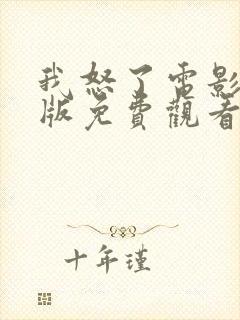 我怒了電影
版免費觀看
十年瑾